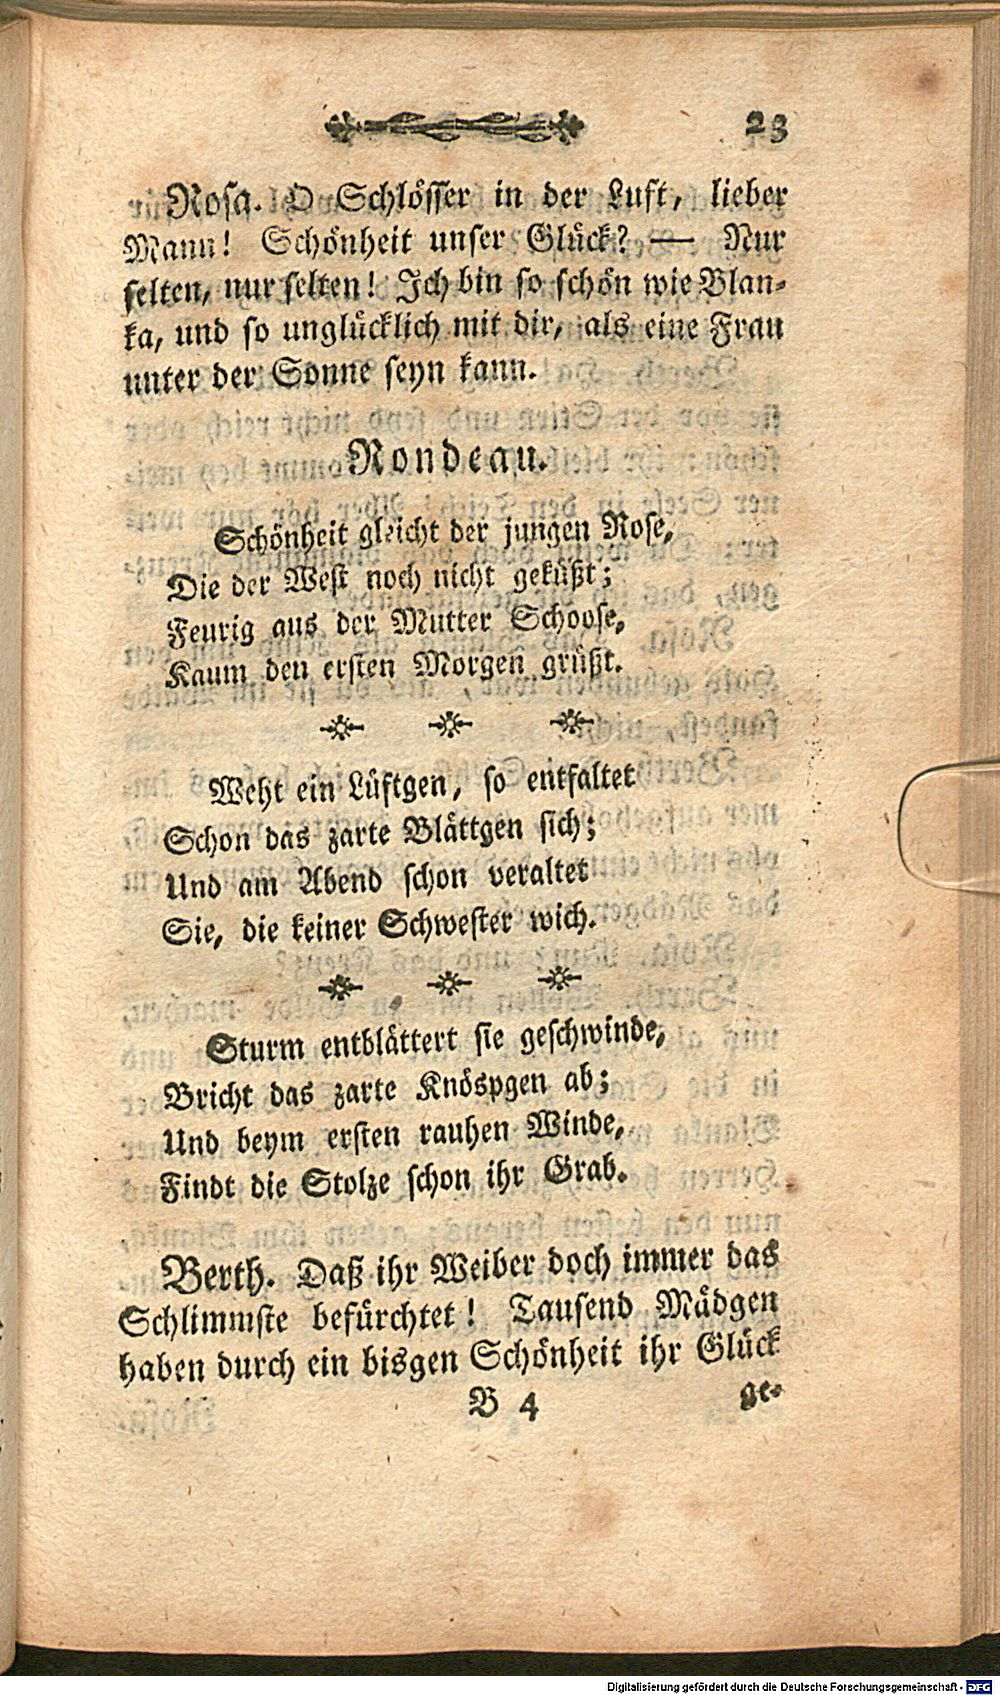 23
Rosa. O Schlösser in der Luft, lieber
Mann! Schönheit unser Glück? — Nur
selten, nur selten! Ich bin so schön wie Blan-
ka, und so unglücklich mit dir, als eine Frau
unter der Sonne seyn kann.
Rondeau.
Schönheit gleicht der jungen Rose,
Die der West noch nicht geküßt;
Feurig aus der Mutter Schoose,
Kaum den ersten Morgen grüßt.
Weht ein Lüftgen, so entfaltet
Schon das zarte Blättgen sich;
Und am Abend schon veraltet
Sie, die keiner Schwester wich.
Sturm entblättert sie geschwinde,
Bricht das zarte Knöspgen ab;
Und beym ersten rauhen Winde,
Findt die Stolze schon ihr Grab.
Berth. Daß ihr Weiber doch immer das
Schlimmste befürchtet! Tausend Mädgen
haben durch ein bisgen Schönheit ihr Glück
B 4 ge-
Digitalisierung gefördert durch die Deutsche Forschungsgemeinschaft - DFG